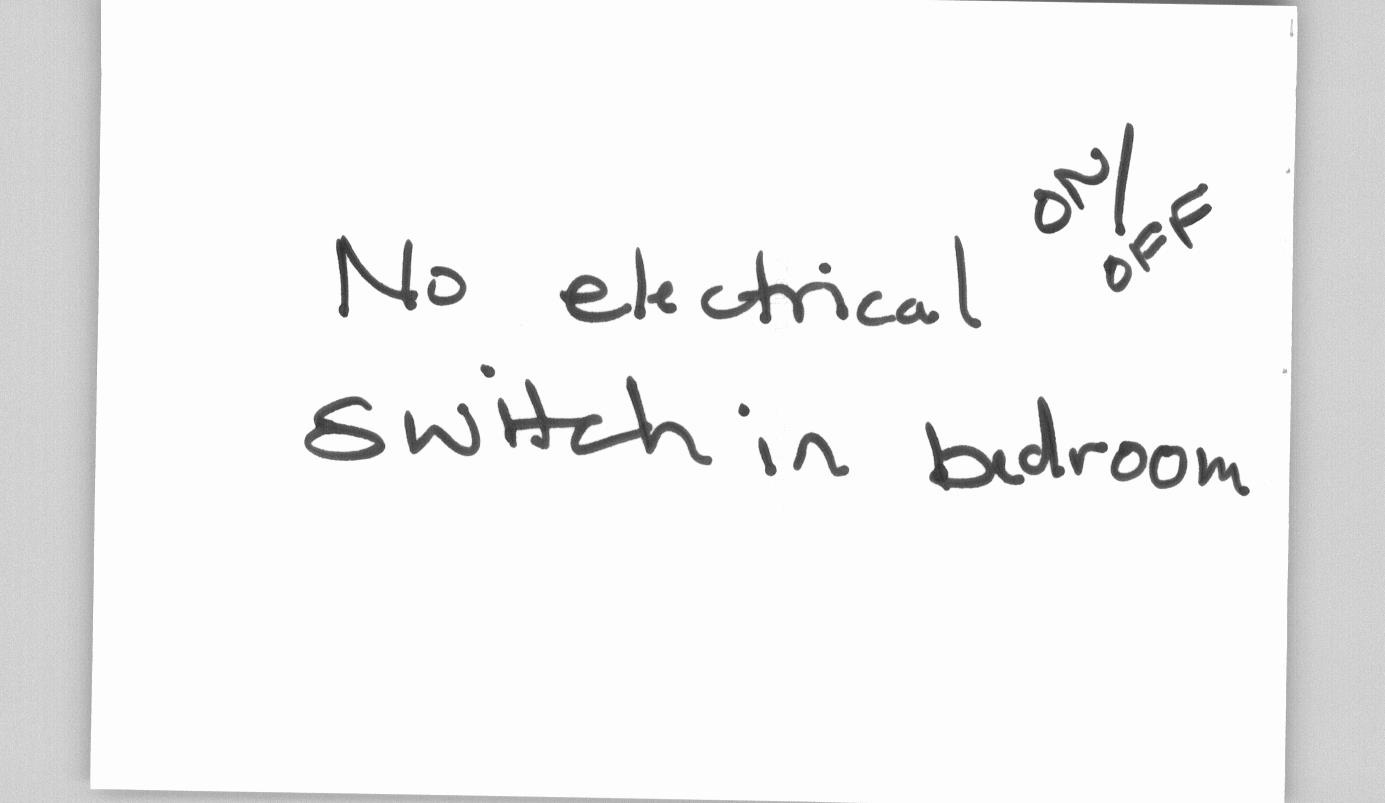 No electrical ON/
OFF
switch in bedroom